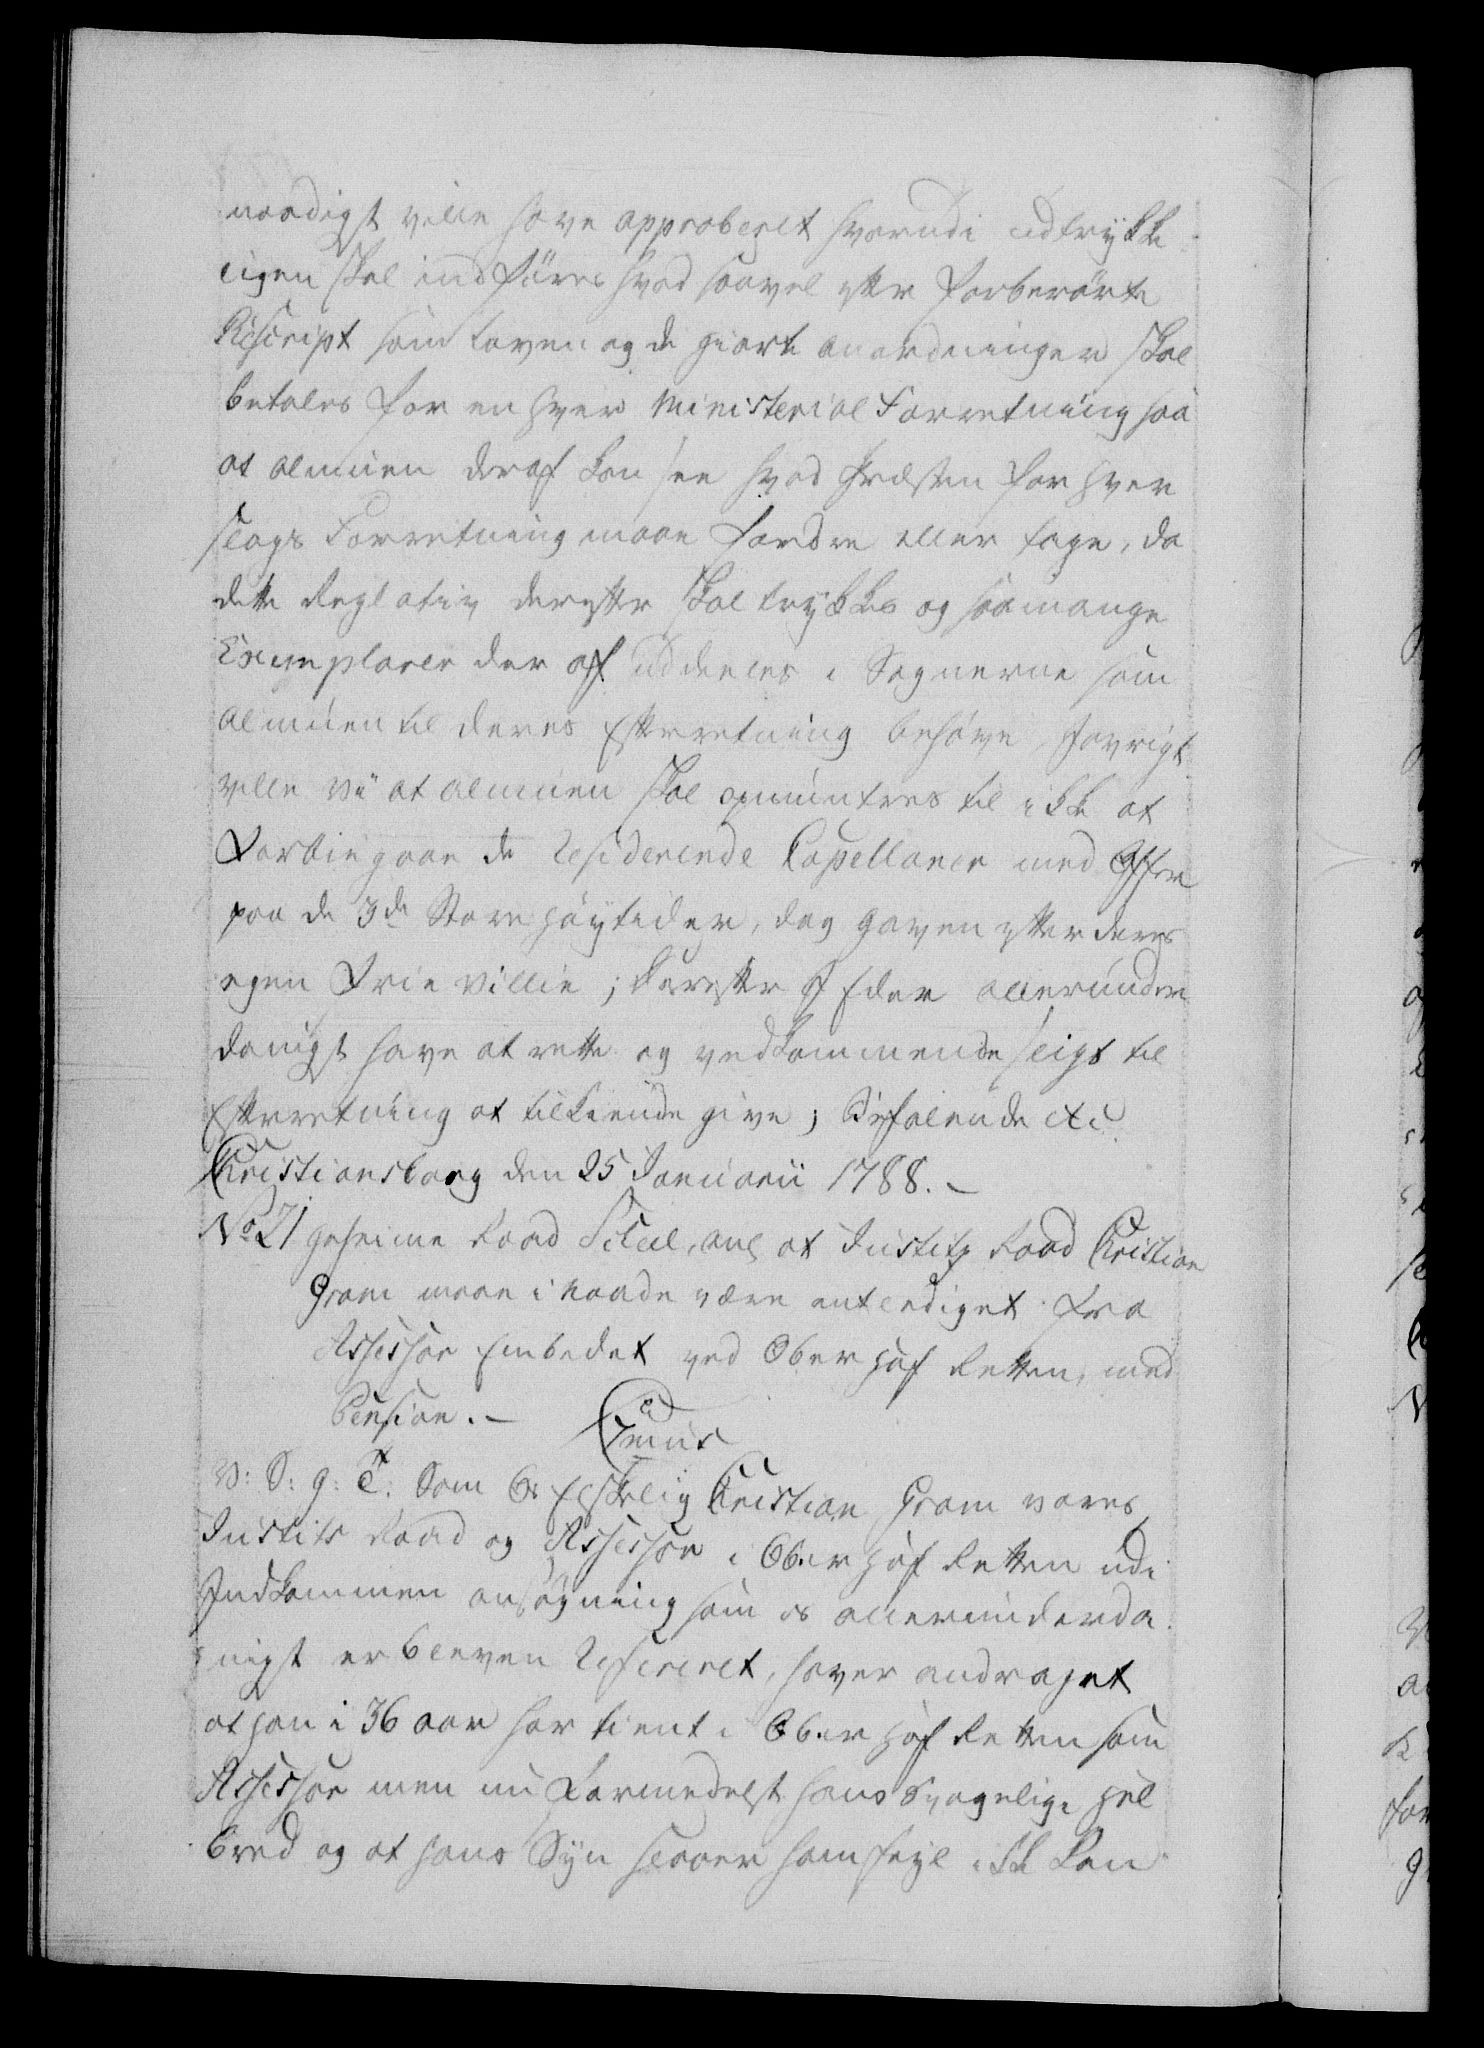 naadigst ville have approberet hvorudi udtrykke
ligen skal indføres hvad saavel efter forberørte
Rescript som loven og de giorte anordninger skal
betales for en hver Ministerial Forretning saa
at almuen deraf kan see hvad Præsten for hver
slags Forretning maae fordre eller tage, da
dette Reglativ derefter skal trykkes og saa mange
Exemplarer der af uddeeles i Sognerne som
almuen til deres Efterretning behøve, Jøvrigt
ville vii at almuen skal opmuntres til ikke at
Forbiegaae de Residerende Capellaner med Offer
paa de 3de Store Høytider, dog Gaven efter deres
egen Frie Villie; derefter I Eder allerunder
danigst have at rette og vedkommende sligt til
Efterretning at tilkiende give; Befalende etc.
Christiansborg den 25 Januarii 1788. –
No 21 geheime Raad Scheel, anl. at Justitz Raad Christian
Gram maae i Naade være entlediget fra
Assessor Embedet ved Ober Hof Retten, med
Pension. –
V: S: G: T: Som Os Elskelig Christian Gram vores
Justits Raad og Assessor i Ober Hof Retten udi
Indkommen ansøgning som os allerunderda
nigst er bleven Refereret, haver andraget
at han i 36 aar har tient i Ober Hof Retten som
Assessor men nu formedelst hans Svagelige Hel
bred og at hans Syn slaaer ham feyl ikke kan